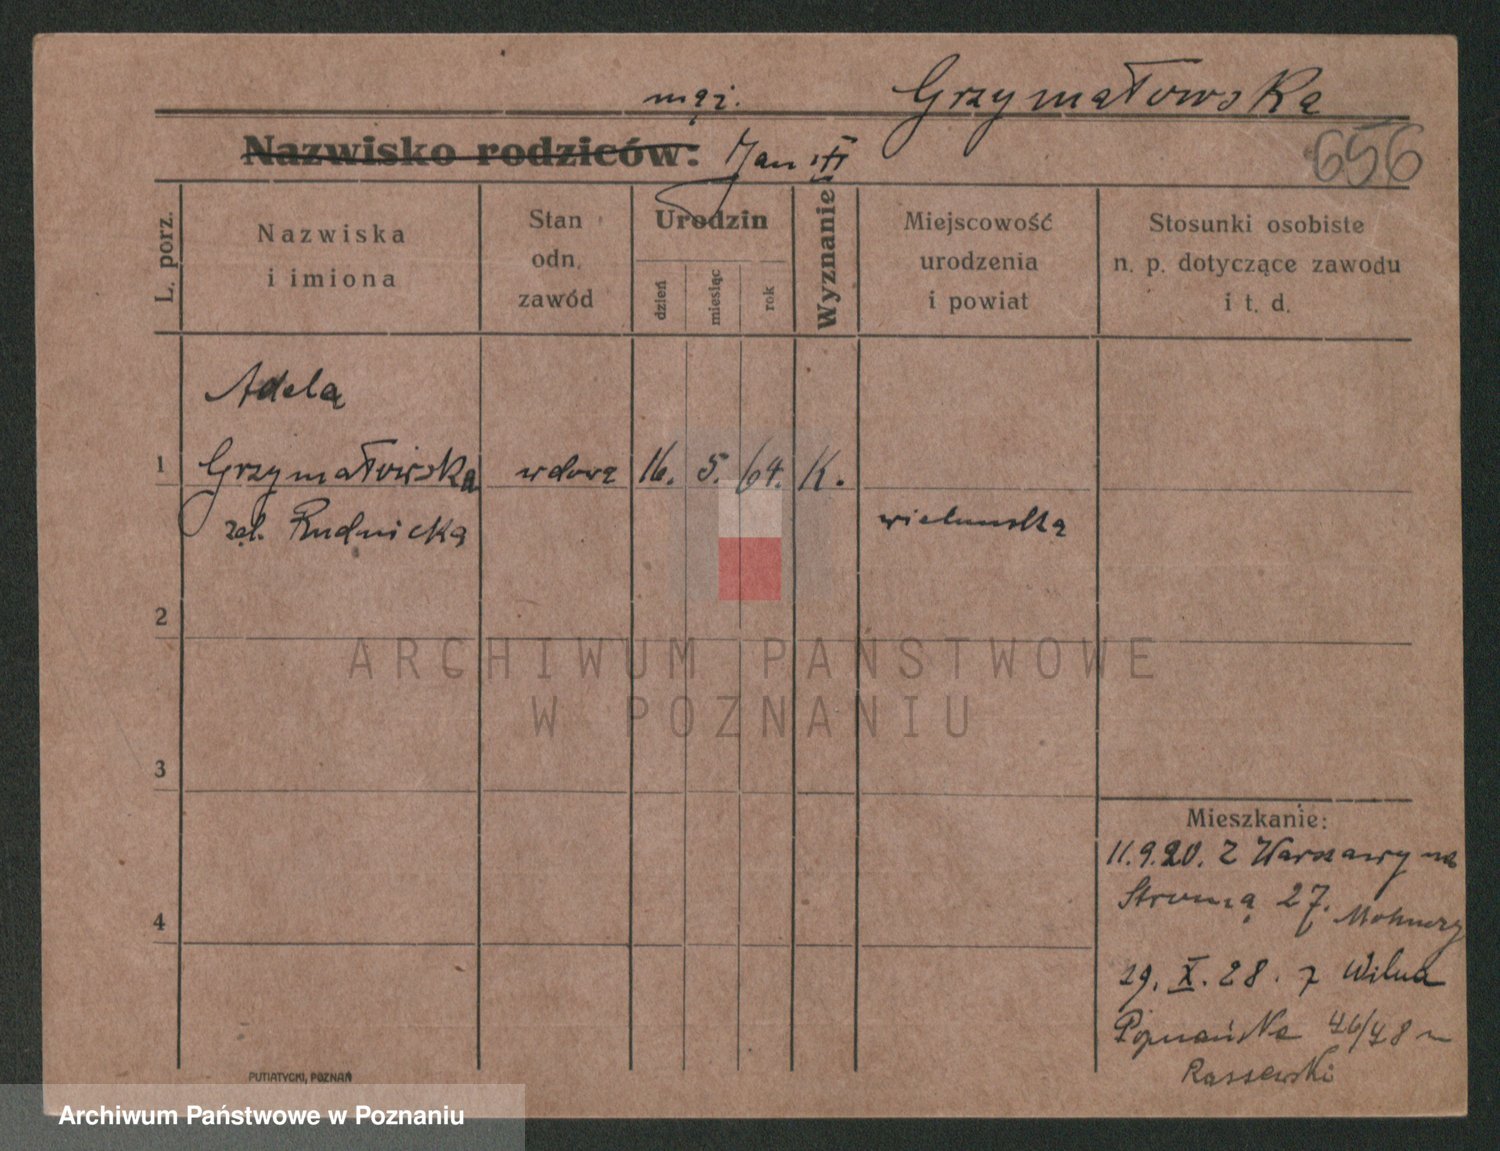 mąż. Grzymałowska
Nazwisko rodziców: Jan
656
L. porz.
Nazwiska
i imiona
Stan
odn.
zawód
Urodzin
dzień
miesiąc
rok
Wyznanie
Miejscowość
urodzenia
i powiat
Stosunki osobiste
n. p. dotyczące zawodu
i t. d.
Adela
1 Grzymałowska wdowa 16. 5. 64. K.
zał. Rudnicka
2
ARCHIWUM PAŃSTWOWE
W POZNANIU
3
Mieszkanie:
11.9.20. z Warszawy na
Stromą 27.
4
29. X. 28. z Wilna
Poznańska 46/48
Raszewski
PUTIATYCKI, POZNAŃ
Archiwum Państwowe w Poznaniu